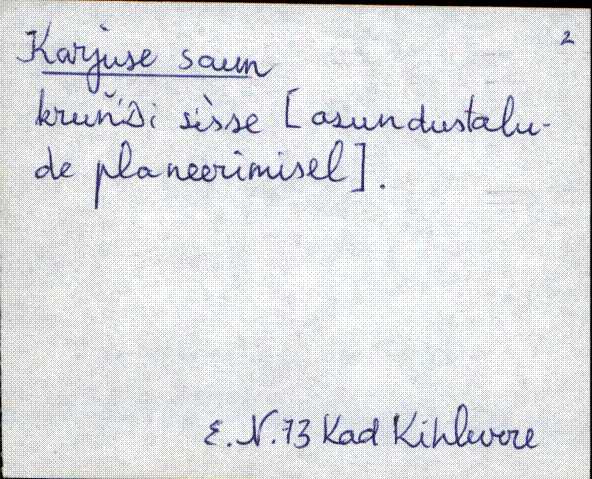 2
Karjuse saun
kruńďi sìsse [asundustalu-
de planeerimisel].
E.N.73 Kad Kihlevere